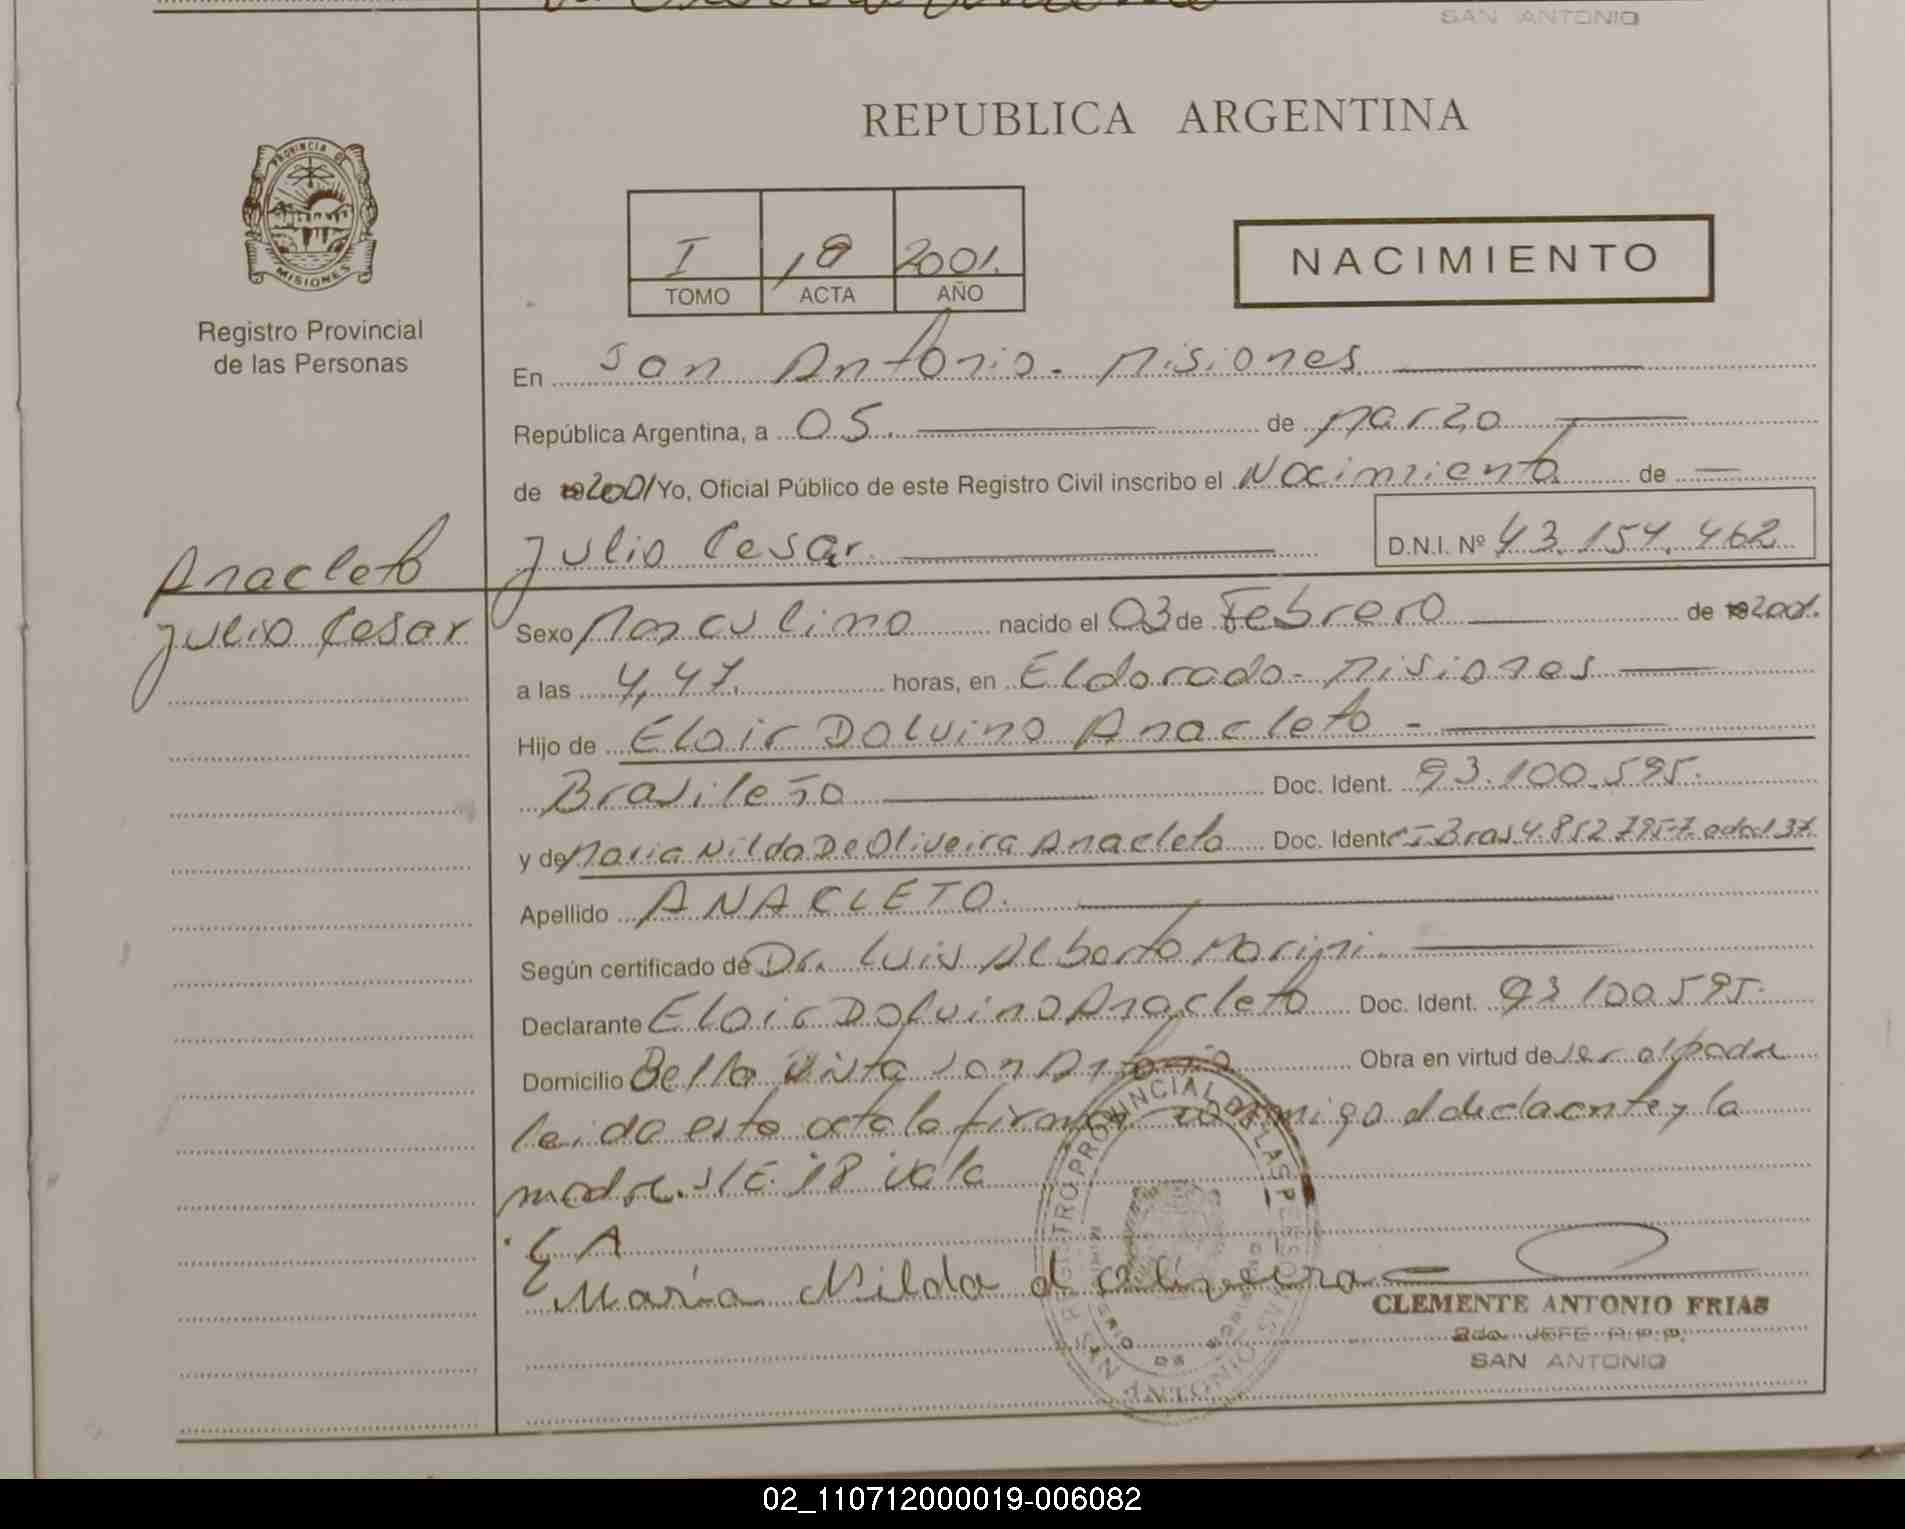 SAN ANTONIO
REPUBLICA ARGENTINA
PROVINCIA DE
MISIONES
Registro Provincial
de las Personas
I 18 2001.
TOMO ACTA AÑO
NACIMIENTO
En San Antonio - Misiones
República Argentina, a 05. de Marzo
de 2001 Yo, Oficial Público de este Registro Civil inscribo el Nacimiento de
Julio Cesar D.N.I. Nº 43.154.462
Anacleto
Julio Cesar
Sexo Masculino nacido el 03 de Febrero de 2001.
a las 4,47. horas, en Eldorado - Misiones
Hijo de Eloir Dalvino Anacleto -
Brasileño Doc. Ident. 93.100.595.
y de Maria Nilda De Oliveira Anacleto Doc. Ident CI Bras 4.852.795-7 edad 37
Apellido ANACLETO.
Según certificado de Dr. Luis Alberto Marini
Declarante Eloir Dalvino Anacleto Doc. Ident. 93 100 595.
Domicilio Bella Vista San Antonio Obra en virtud de ser el padre
leida esta acta la firma conmigo el declarante y la
madre. S/E. 18 vale
E A
Maria Nilda d Oliveira
CLEMENTE ANTONIO FRIAS
2do. JEFE R.P.P.
SAN ANTONIO
REGISTRO PROVINCIAL DE LAS PERSONAS
SAN ANTONIO
02_110712000019-006082